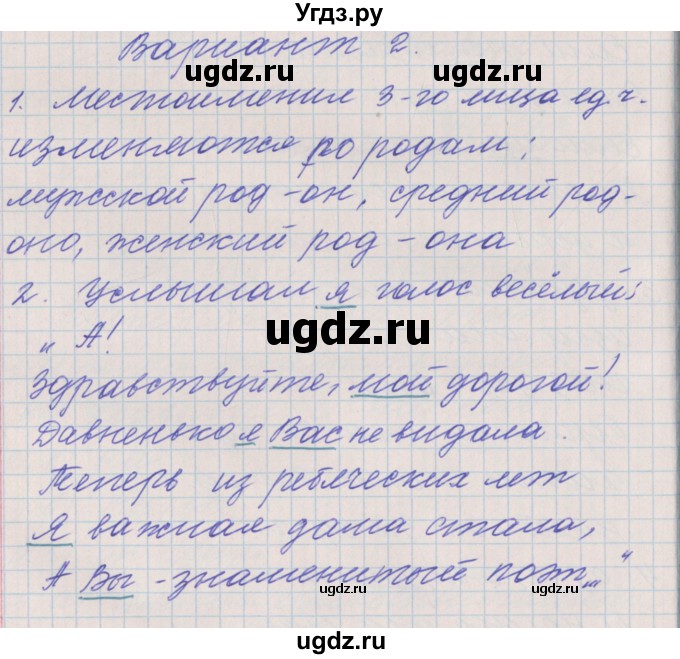 Угдз.ру
Вариант 2.
ugdz.ru ugdz.ru
1. Местоимения 3-го лица ед.ч.
изменяются по родам:
мужской род - он, средний род-
оно, женский род - она
ugdz.ru
2. Услышал я голос весёлый:
„ А!
ugdz.ru
Здравствуйте, мой дорогой!
Давненько я Вас не видала.
ugdz.ru ugdz.ru
Теперь из ребяческих лет
Я важная дама стала,
А Вы - знаменитый поэт..."
ugdz.ru ugdz.ru
ugdz.ru